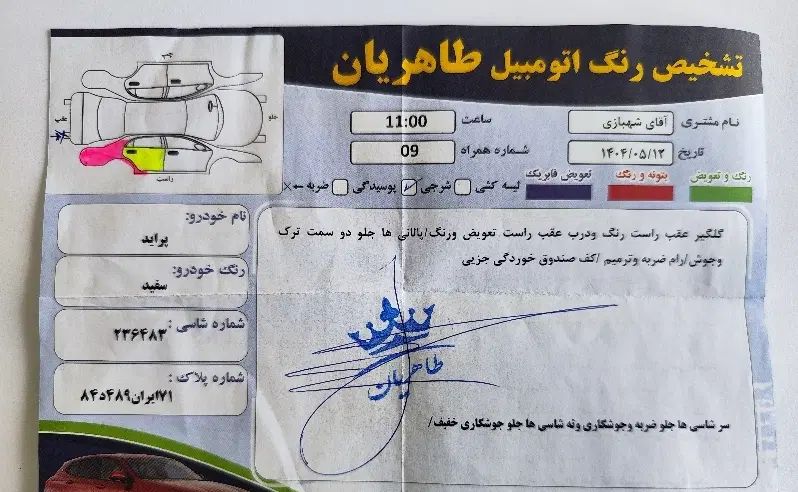 تشخیص رنگ اتومبیل طاهریان
نام مشتری آقای شهبازی ساعت 11:00
تاریخ ۱۴۰۴/۰۵/۱۲ شماره همراه 09
رنگ و تعویض بتونه و رنگ تعویض فابریک لیسه کشی شرجی پوسیدگی ضربه ←×
عقب
جلو
راست
نام خودرو:
پراید
رنگ خودرو:
سفید
شماره شاسی:
۲۳۶۴۸۳
شماره پلاک:
۷۱ایران۴۸۹د۸۴
گلگیر عقب راست رنگ ودرب عقب راست تعویض ورنگ/پالانی ها جلو دو سمت ترک
وجوش/رام ضربه وترمیم /کف صندوق خوردگی جزیی
طاهریان
سر شاسی ها جلو ضربه وجوشکاری وته شاسی ها جلو جوشکاری خفیف/